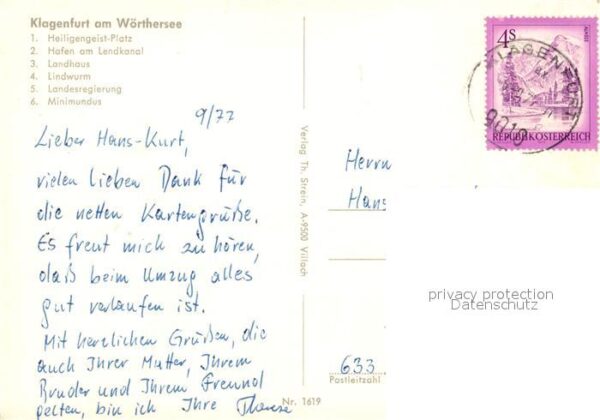 Klagenfurt am Wörthersee
1. Heiligengeist-Platz
2. Hafen am Lendkanal
3. Landhaus
4. Lindwurm
5. Landesregierung
6. Minimundus
9/77
Lieber Hans-Kurt,
vielen lieben Dank für
die netten Kartengrüße.
Es freut mich zu hören,
daß beim Umzug alles
gut verlaufen ist.
Mit herzlichen Grüßen, die
auch Ihrer Mutter, Ihrem
Bruder und Ihrem Freund
gelten, bin ich Ihre Therese
Verlag Th. Strein, A-9500 Villach
Nr. 1619
4S
KLAGENFURT
9010
REPUBLIK ÖSTERREICH
Herrn
Hans
privacy protection
Datenschutz
633
Postleitzahl